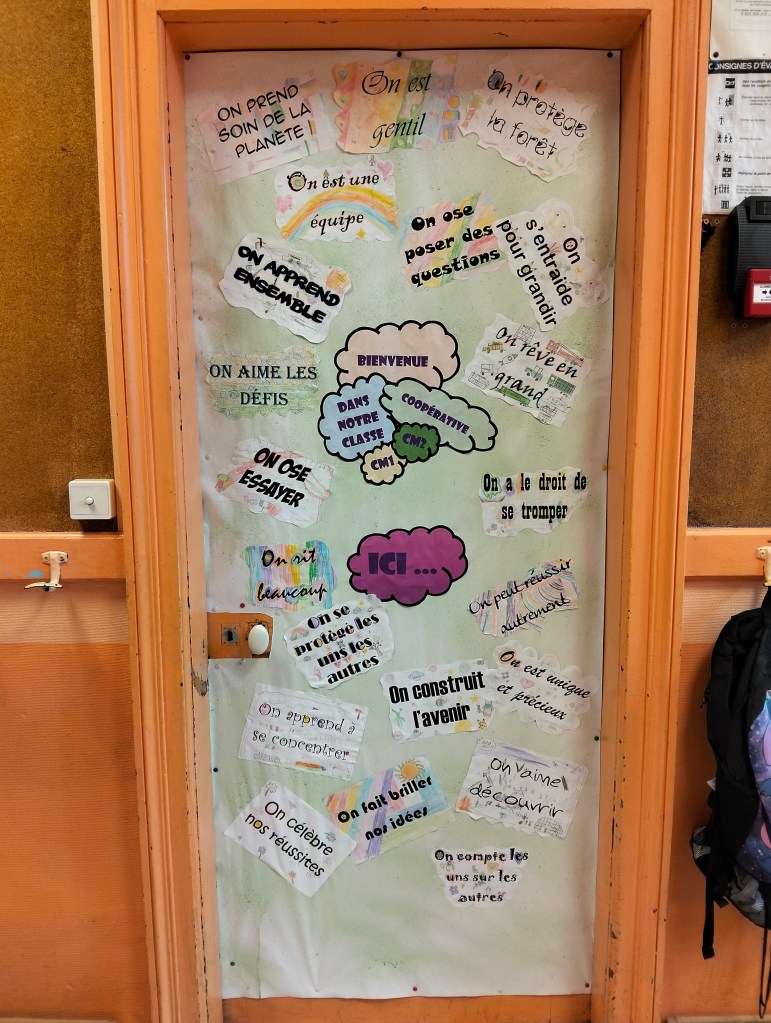 ON PREND
SOIN DE LA
PLANÈTE
On est
gentil
On protège
la forêt
On est une
équipe
On ose
poser des
questions
On
s'entraide
pour grandir
ON APPREND
ENSEMBLE
BIENVENUE
DANS
NOTRE
CLASSE
COOPÉRATIVE
CM2
CM1
On rêve en
grand
ON AIME LES
DÉFIS
ON OSE
ESSAYER
On a le droit de
se tromper
On rit
beaucoup
ICI ...
On peut réussir
autrement
On se
protégé les
uns les
autres
On construit
l'avenir
On est unique
et précieux
On apprend à
se concentrer
On fait briller
nos idées
On vaime
découvrir
On célèbre
nos réussites
On compte les
uns sur les
autres